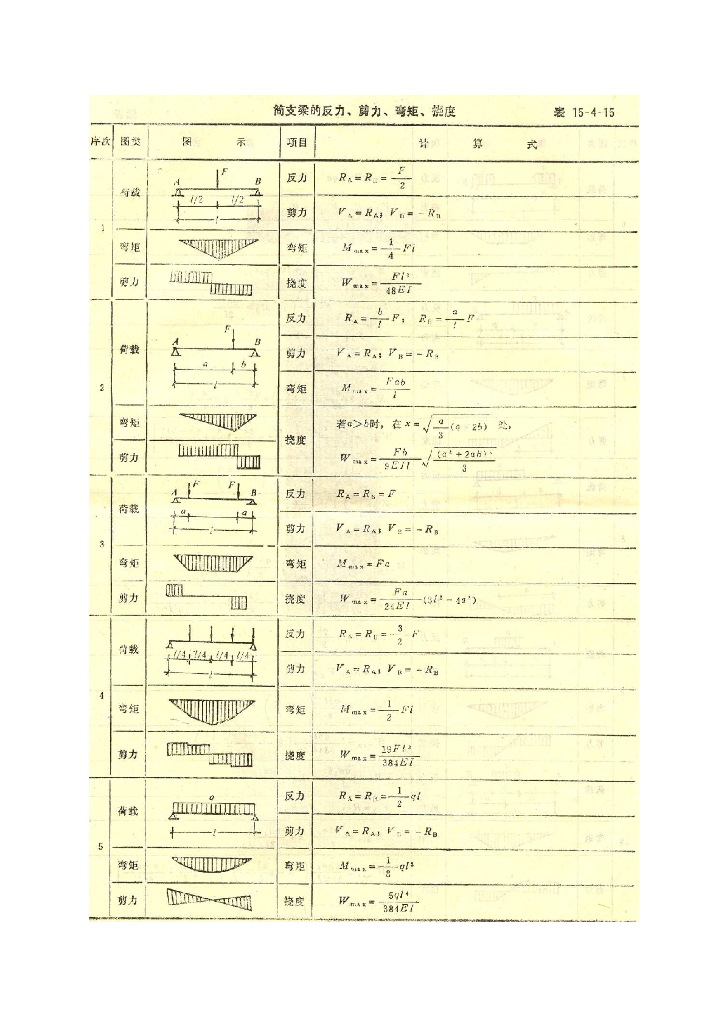 简支梁的反力、剪力、弯矩、挠度 表 15-4-15
序次 图类 图 示 项目 计 算 式
1 荷载 A F B l/2 l/2 l 反力 R_A = R_B = F/2
剪力 V_A = R_A; V_B = -R_B
弯矩 弯矩 M_max = 1/4 Fl
剪力 挠度 W_max = Fl³/48EI
2 荷载 F A B a b l 反力 R_A = b/l F; R_B = a/l F
剪力 V_A = R_A; V_B = -R_B
弯矩 M_max = Fab/l
弯矩 挠度 若a>b时, 在 x = √(a/3 (a + 2b)) 处,
剪力 W_max = Fb/9EIl √((a² + 2ab)³/3)
3 荷载 F F A B a a l 反力 R_A = R_B = F
剪力 V_A = R_A; V_B = -R_B
弯矩 弯矩 M_max = Fa
剪力 挠度 W_max = Fa/24EI (3l² - 4a²)
4 荷载 l/4 l/4 l/4 l/4 l 反力 R_A = R_B = 3/2 F
剪力 V_A = R_A; V_B = -R_B
弯矩 弯矩 M_max = 1/2 Fl
剪力 挠度 W_max = 19Fl³/384EI
5 荷载 l 反力 R_A = R_B = 1/2 ql
剪力 V_A = R_A; V_B = -R_B
弯矩 弯矩 M_max = 1/8 ql²
剪力 挠度 W_max = 5ql⁴/384EI